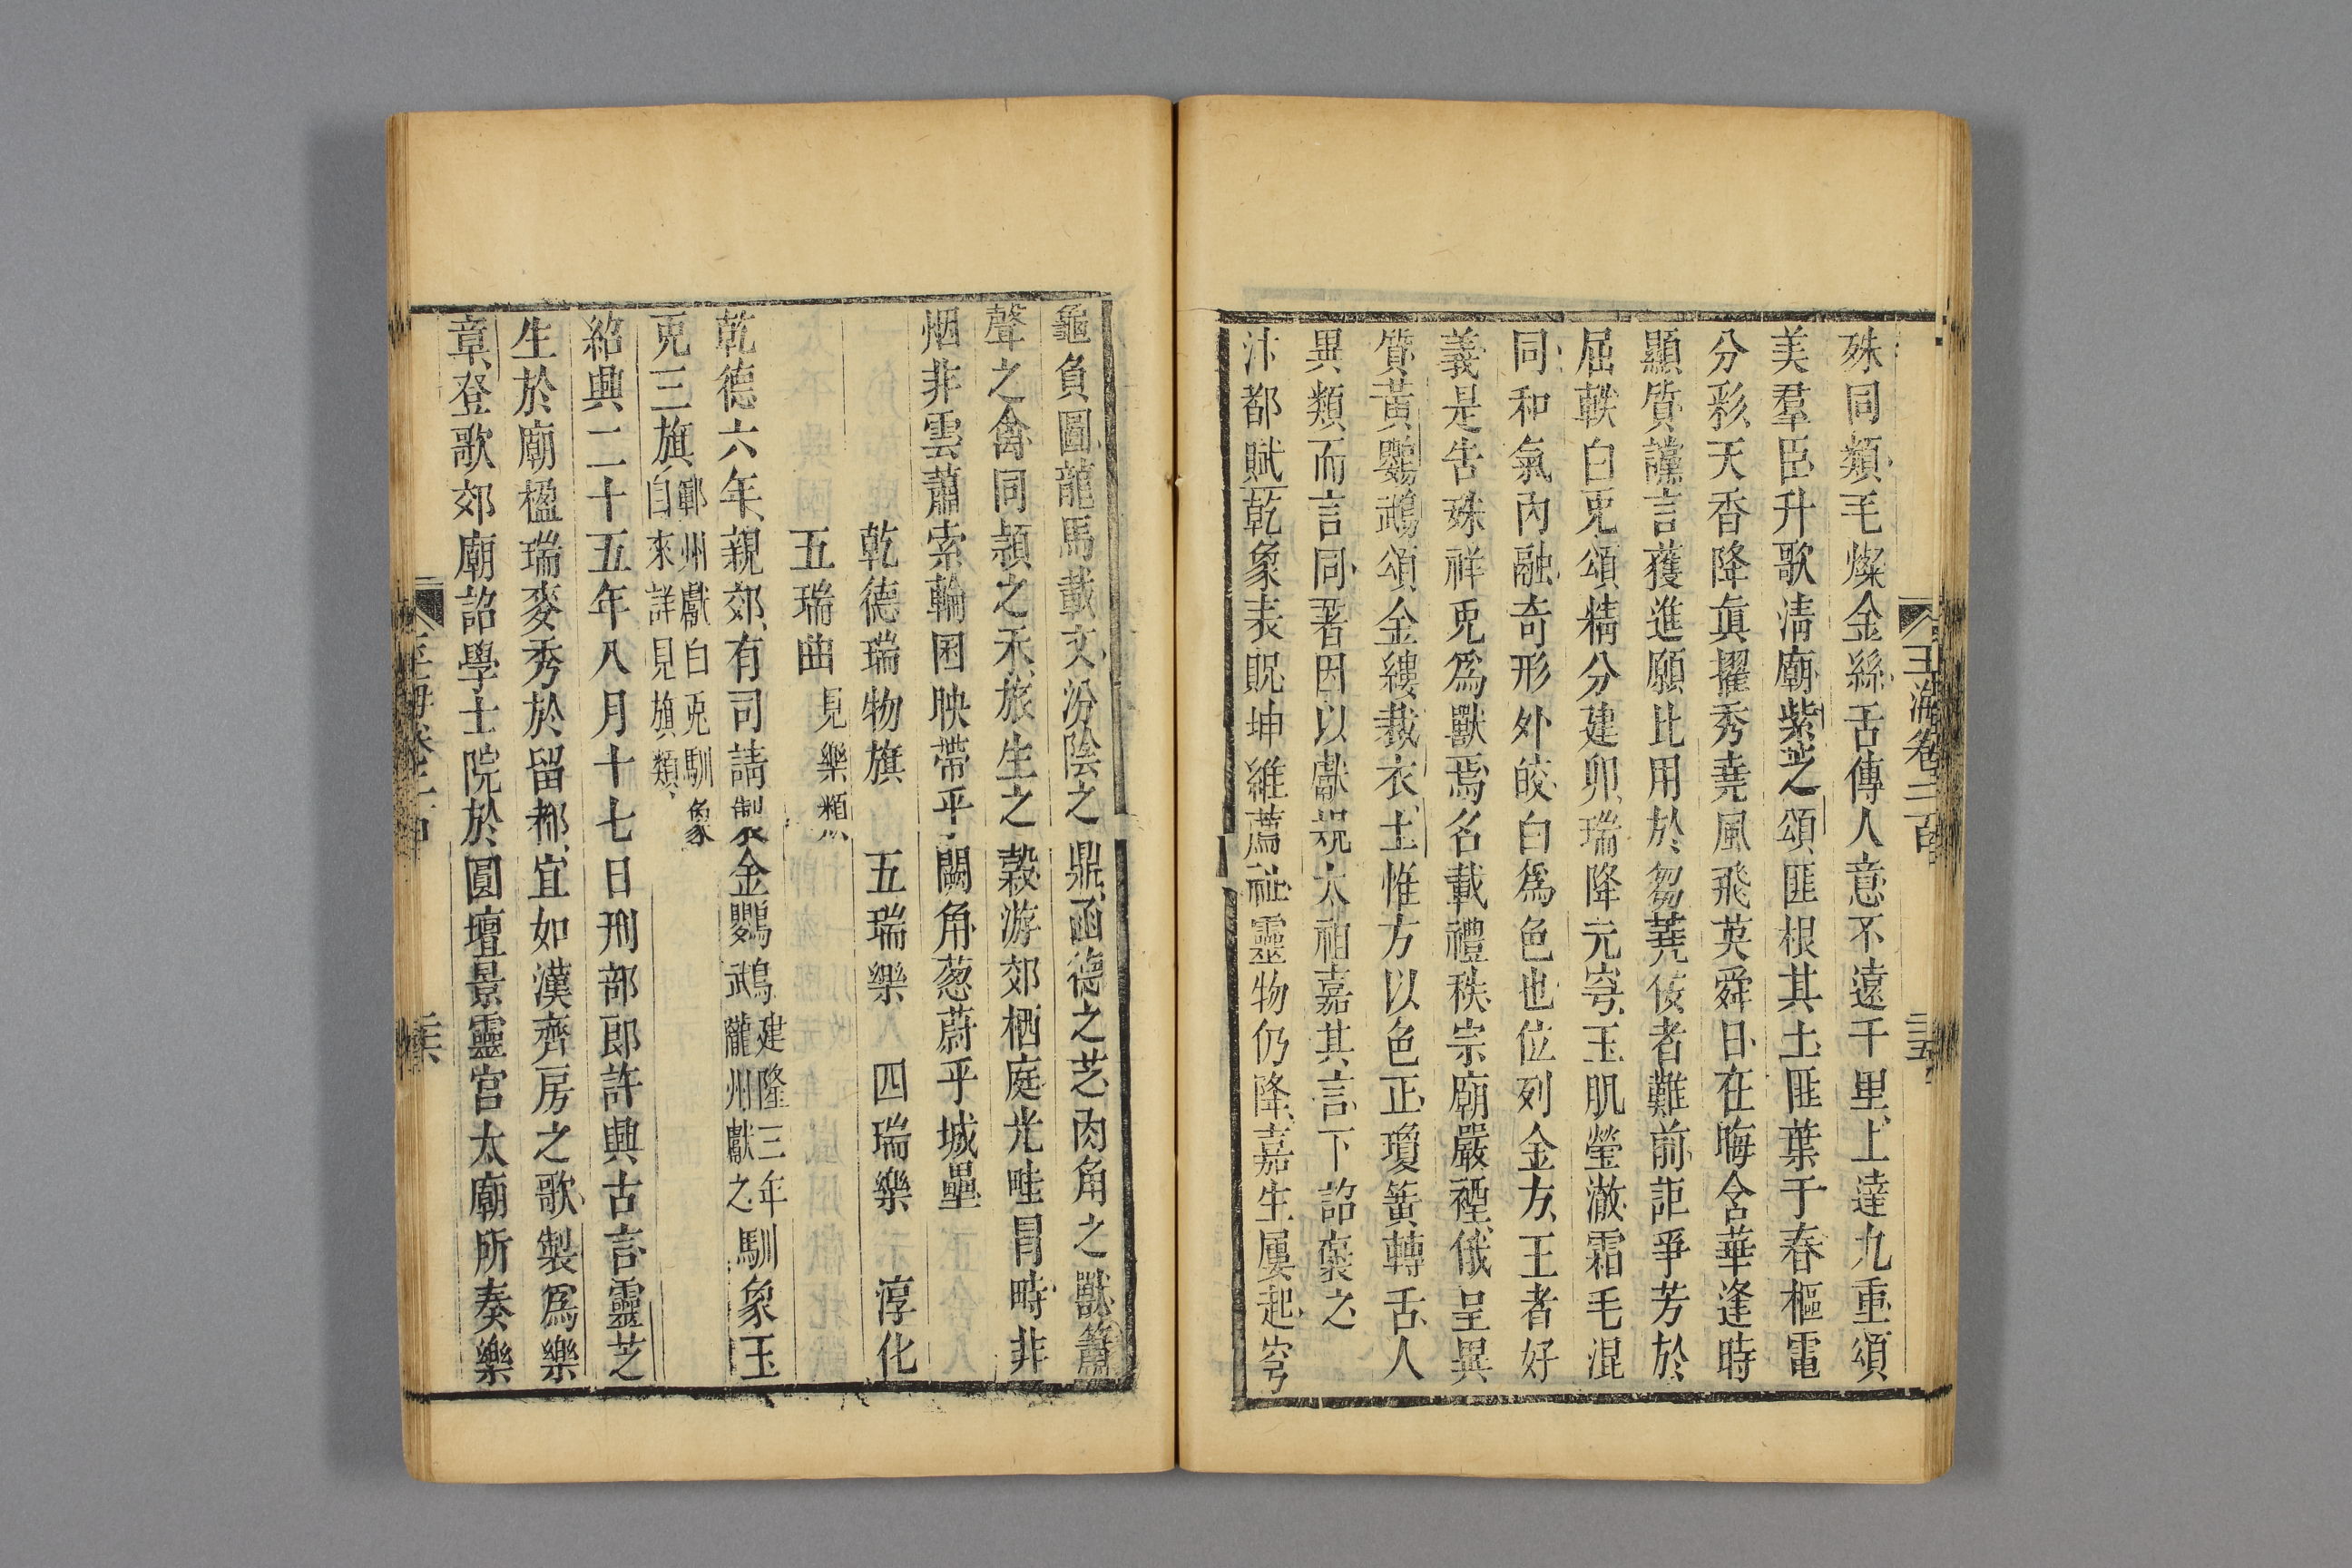 玉海卷二百
三十五
殊同類毛燦金絲舌傳人意不遠千里上達九重頌
美羣臣升歌淸廟紫芝之頌匪根其土匪葉于春樞電
分彩天香降眞擢秀堯風飛英舜日在晦含華逢時
顯質讜言獲進願比用於芻蕘佞者難前詎爭芳於
屈軼白兎頌精分建卯瑞降元穹玉肌瑩澈霜毛混
同和氣內融奇形外皎白爲色也位列金方王者好
義是吿殊祥兎爲獸焉名載禮秩宗廟嚴禋俄呈異
質黃鸚鵡頌金縷裁衣土惟方以色正瓊簧轉舌人
異類而言同著因以獻規太祖嘉其言下詔褒之
汴都賦乾象表貺坤維薦祉靈物仍降嘉生屢起穹
龜負圖龍馬載文汾陰之鼎函德之芝肉角之獸簫
聲之禽同頴之禾旅生之穀游郊栖庭光畦冒畤非
烟非雲蕭索輪囷映帶乎闕角葱蔚乎城壘
乾德瑞物旗 五瑞樂 四瑞樂 淳化
五瑞曲見樂類
乾德六年親郊有司請製金鸚鵡建隆三年隴州獻之馴象玉
兎三旗鄆州獻白兎馴象自來詳見旗類
紹興二十五年八月十七日刑部郎許興古言靈芝
生於廟楹瑞麥秀於留都宜如漢齊房之歌製爲樂
章登歌郊廟詔學士院於圓壇景靈宮太廟所奏樂